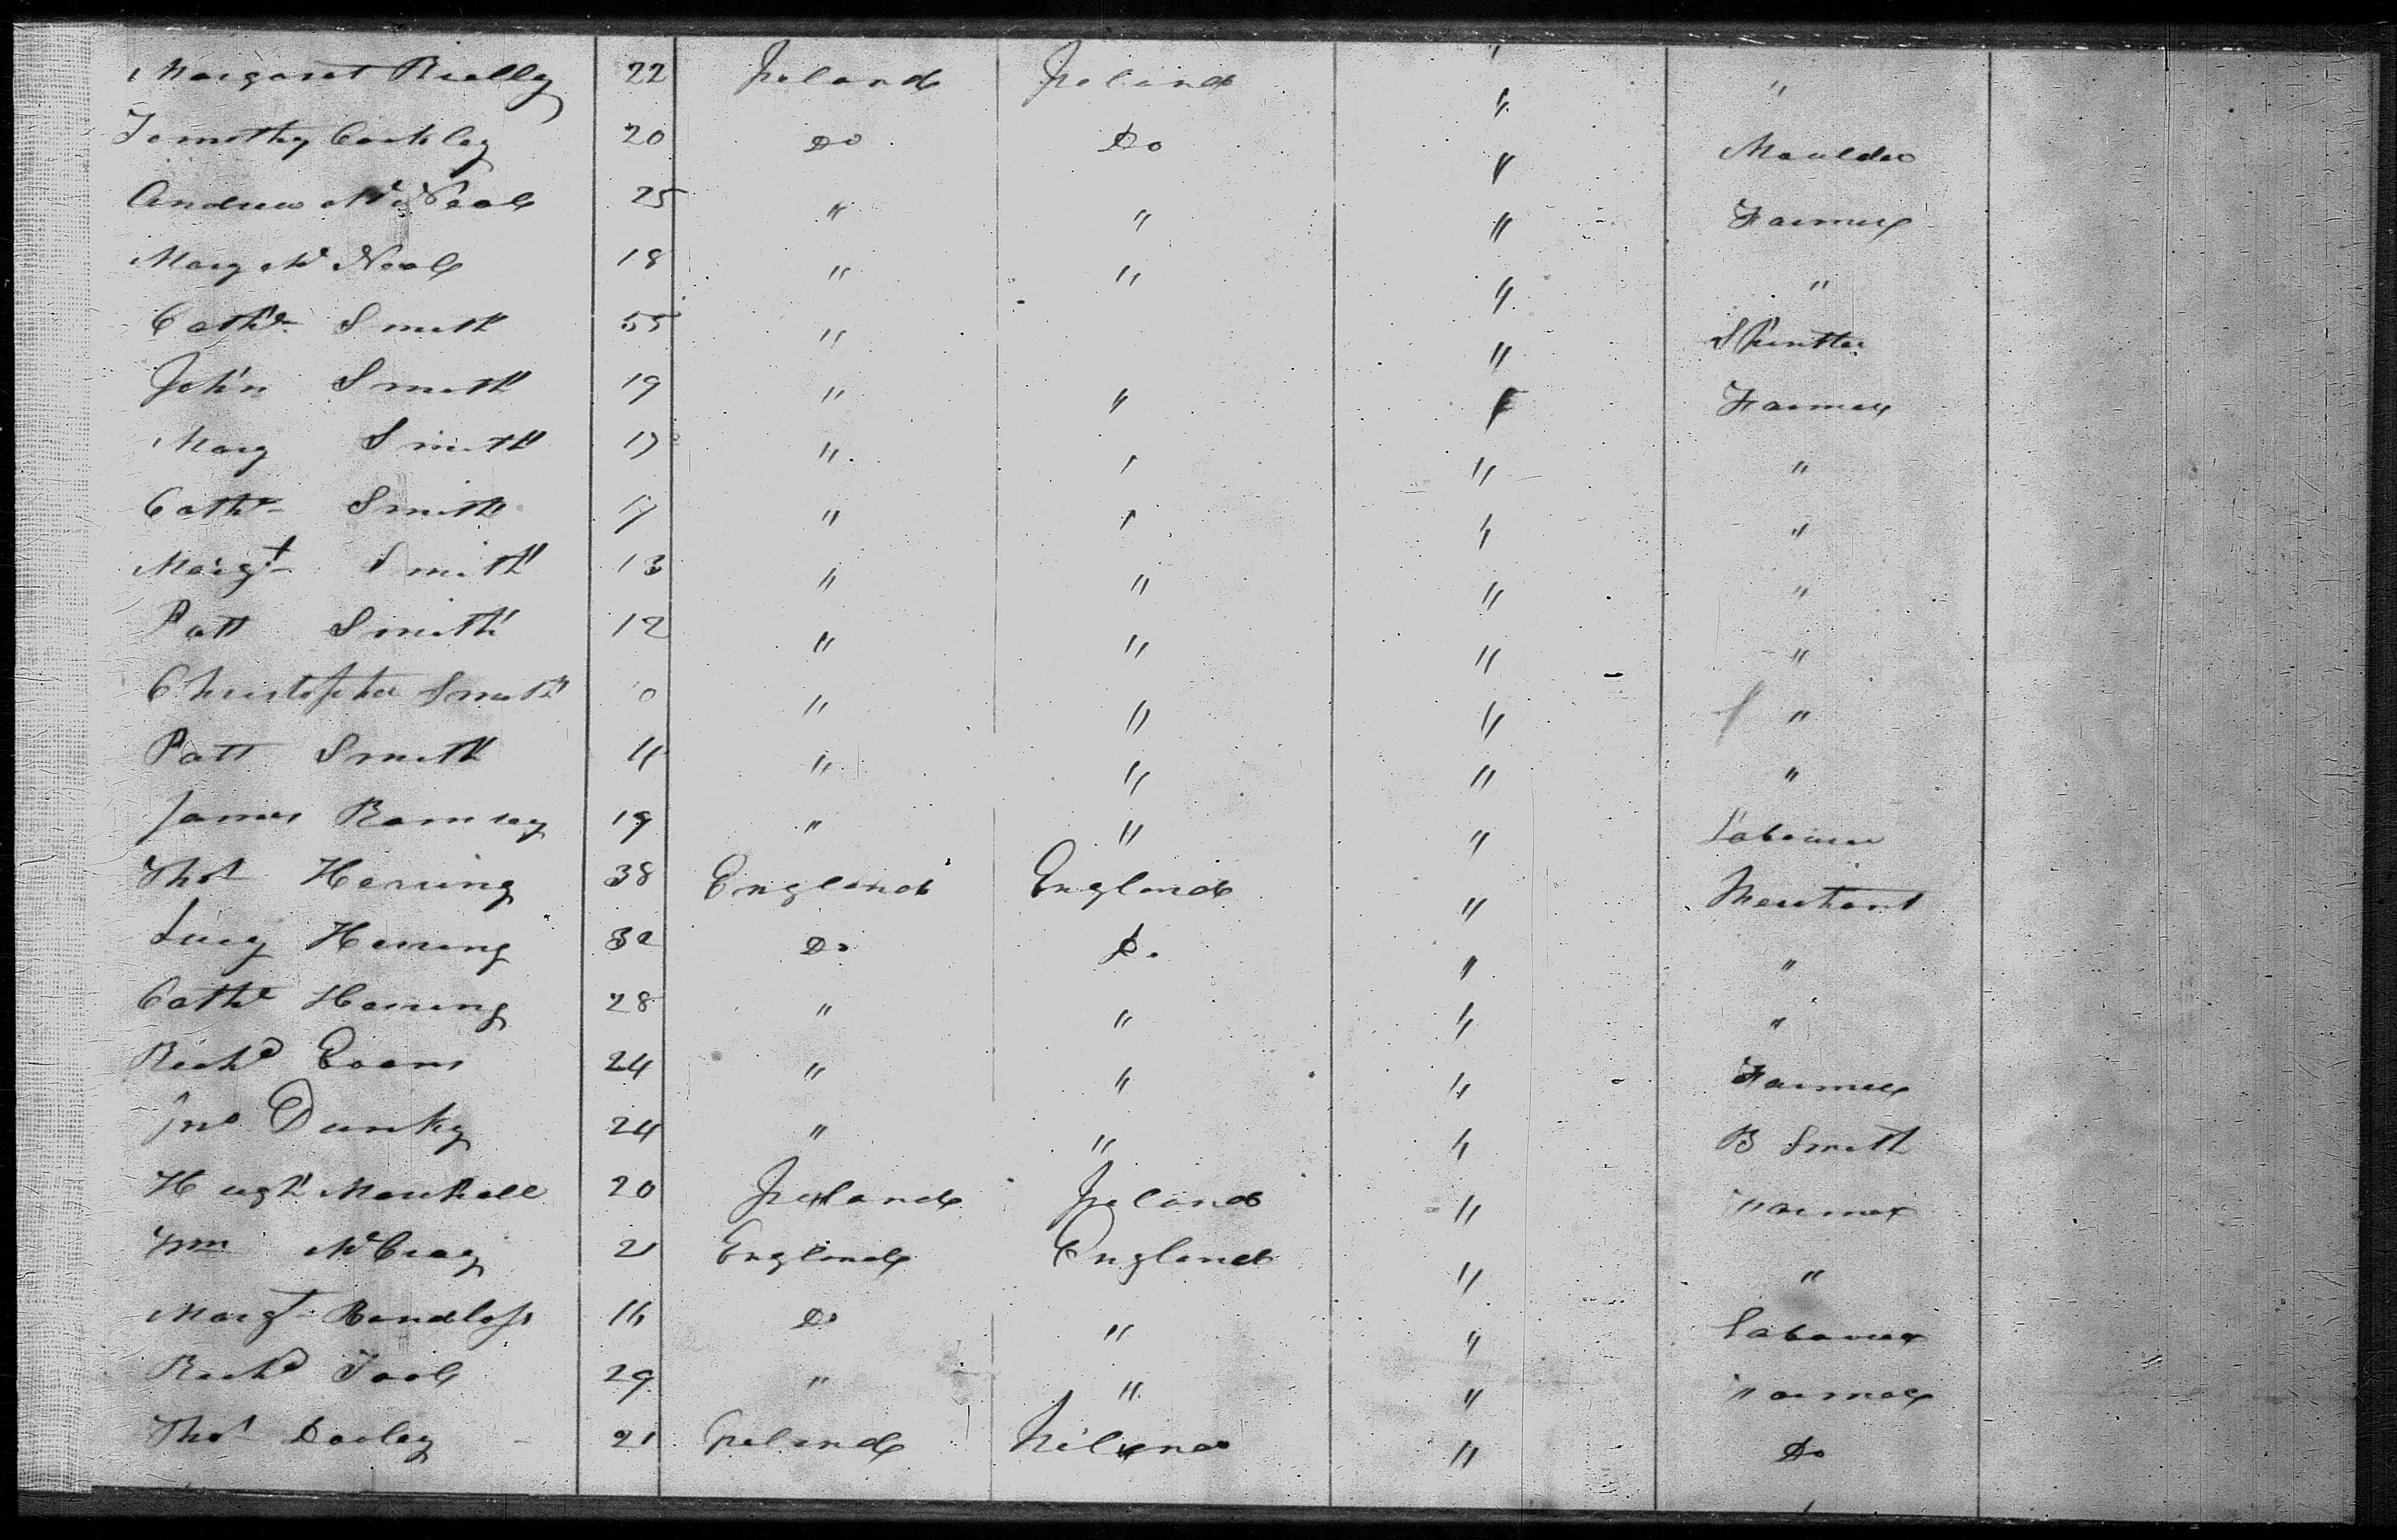 " "
Margaret Reilly 22 Ireland Ireland " "
Timothy Coakley 20 Do Do " Moulder
Andrew McNeal 25 " " " Farmer
Mary McNeal 18 " " " "
Cathe Smith 55 " "
John Smith 19 " " " Farmer
Mary Smith 17 " " " "
Cathe Smith 17 " " " "
Margt Smith 13 " " " "
Patt Smith 12 " " " "
Christopher Smith " " " "
Patt Smith 11 " " " "
James Ramsay 19 " " " Labourer
Thos Herring 38 England England " Merchant
Lucy Herring 32 Do Do " "
Cathe Herring 28 " " " "
Richd Evans 24 " " " Farmer
Jno 24 " " " B Smith
Hugh Marshall 20 Ireland Ireland " Farmer
Wm McCray 21 England England " "
Margt Randloss 16 Do " " Labourer
Richd Tool 29 " " " Farmer
Thos Dooley 21 Ireland Ireland " Do